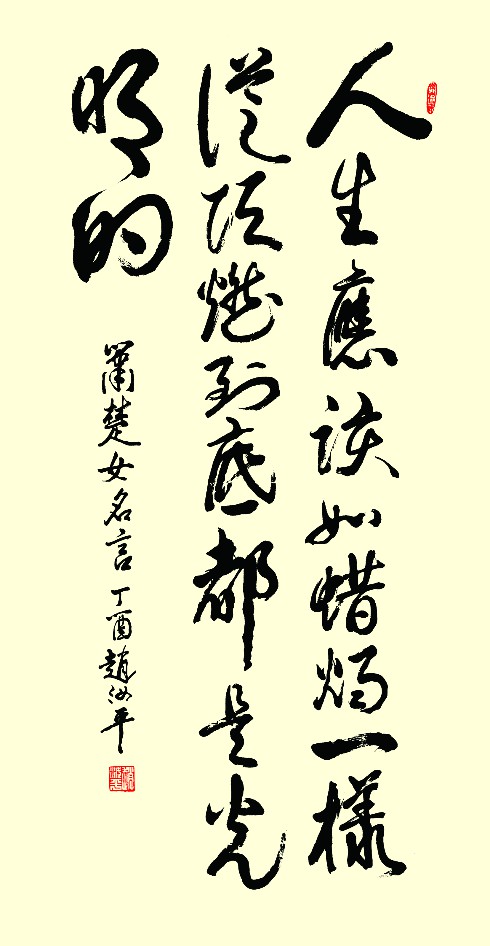 人生應該如蜡烛一樣
從頂燃到底都是光
明的
蕭楚女名言 丁酉 趙汝平